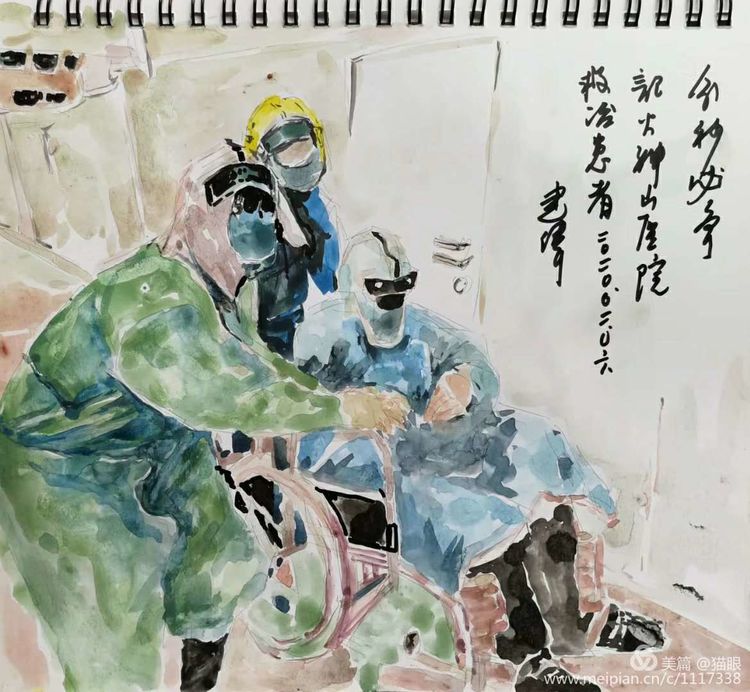 分秒必争
記火神山医院
救治患者二〇二〇.〇二.〇六
建緯
美篇 @猫眼
www.meipian.cn/c/1117338